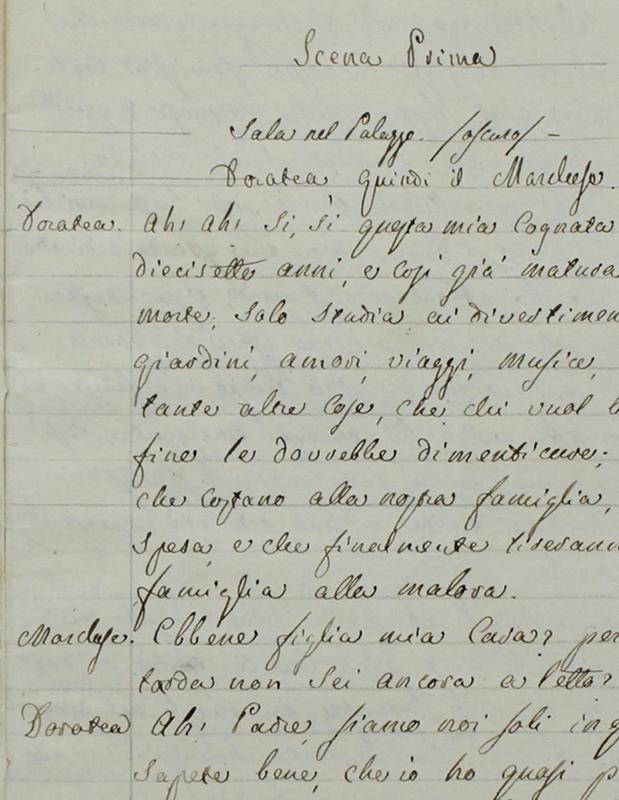 Scena Prima
Sala nel Palazzo. /oscuro/ –
Doratea quindi il Marchese.
Doratea. Ah! Ah! Si, si questa mia Cognata
diecisette anni, e così già matura
morte; Solo studia ai divertimen
giardini, amori, viaggi, musica,
tante altre cose, che chi vuol
fine le dovrebbe dimenticare;
che costano alla nostra famiglia,
spesa, e che finalmente tireran
famiglia alla malora.
Marchese. Ebbene figlia mia Cara? per
tarda non sei ancora a letto?
Doratea Ah! Padre, siamo noi soli in q
Sapete bene, che io ho quasi p